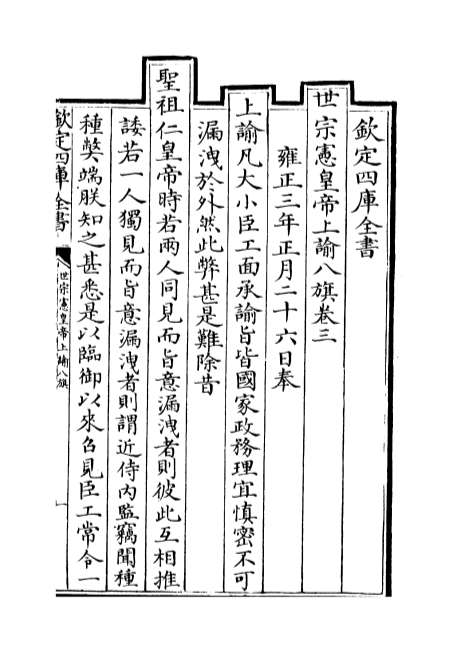 欽定四庫全書
世宗憲皇帝上諭八旗卷三
雍正三年正月二十六日奉
上諭凡大小臣工面承諭旨皆國家政務理宜慎密不可
漏洩於外然此弊甚是難除昔
聖祖仁皇帝時若兩人同見而旨意漏洩者則彼此互相推
諉若一人獨見而旨意漏洩者則謂近侍內監竊聞種
種獘端朕知之甚悉是以臨御以來召見臣工常令一
欽定四庫全書
世宗憲皇帝上諭八旗
一